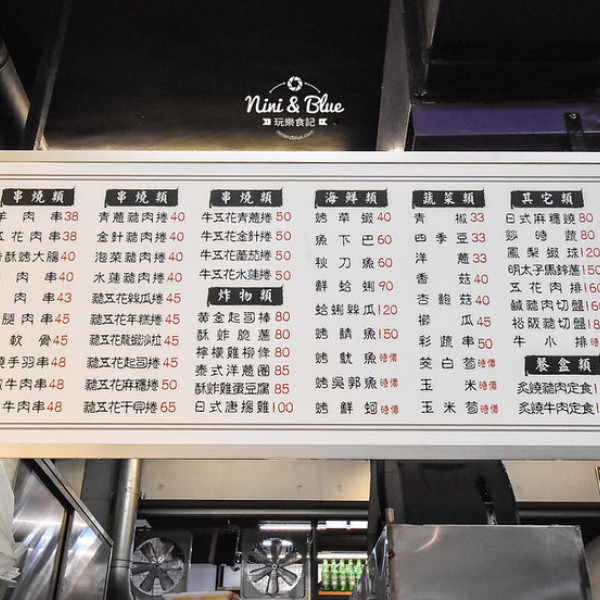 Nini & Blue
玩樂食記
niniandblue.com
串燒類
羊肉串38
五花肉串38
肉40
肉串43
腿肉串45
軟骨45
手羽串48
牛肉串48
牛肉串48
串燒類
青蔥豬肉捲40
金針豬肉捲40
泡菜豬肉捲40
水蓮豬肉捲40
豬五花絲瓜捲45
豬五花年糕捲45
豬五花龍蝦沙拉45
豬五花起司捲45
豬五花麻糬捲50
豬五花干貝捲65
串燒類
牛五花青蔥捲50
牛五花金針捲50
牛五花蘆筍捲50
牛五花水蓮捲50
炸物類
黃金起司棒80
酥炸脆薯80
檸檬雞柳條80
泰式洋蔥圈85
酥炸雞蛋豆腐85
日式唐揚雞100
海鮮類
烤草蝦40
魚下巴60
秋刀魚60
鮮蛤蜊90
蛤蜊絲瓜120
烤鯖魚150
烤魷魚時價
烤吳郭魚時價
烤鮮蚵時價
蔬菜類
青椒33
四季豆33
洋蔥33
香菇40
杏鮑菇40
櫛瓜45
彩蔬串50
茭白筍時價
玉米時價
玉米筍時價
其它類
日式麻糬燒80
炒時蔬80
鳳梨蝦球120
明太子馬鈴薯150
五花肉排160
鹹豬肉切盤
松阪豬切盤
牛小排時
餐盒類
炙燒豬肉定食
炙燒牛肉定食